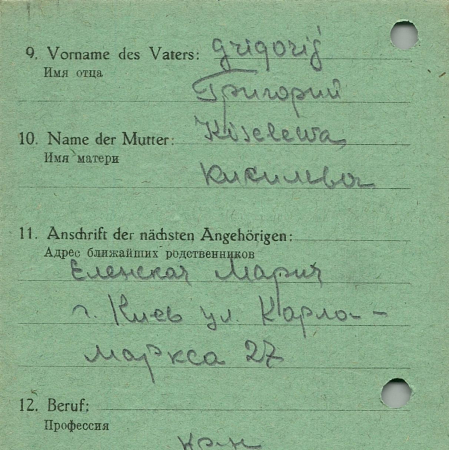 9. Vorname des Vaters: Grigorij
Имя отца
Григорий
10. Name der Mutter: Kiselewa
Имя матери
Кисильва
11. Anschrift der nächsten Angehörigen:
Адрес ближайших родственников
Еленская Мария
г. Киев ул. Карла-
Маркса 27
12. Beruf:
Профессия